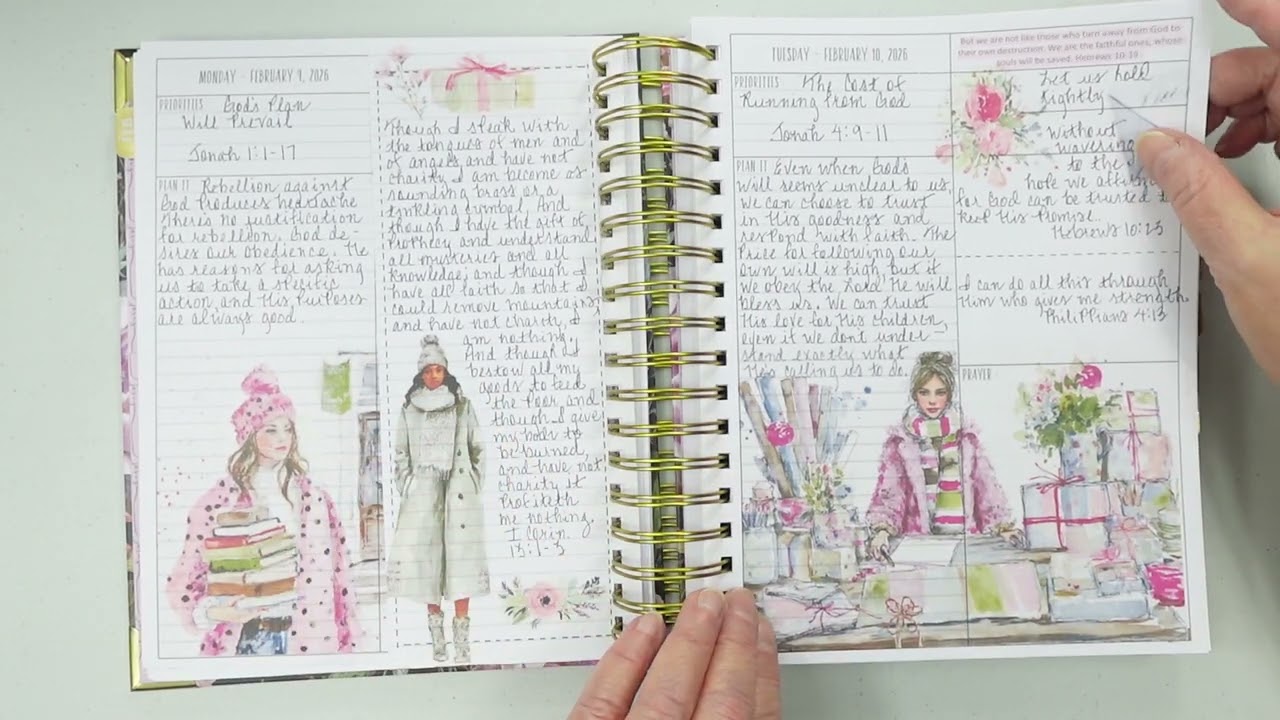 MONDAY - FEBRUARY 9, 2026
PRIORITIES God's Plan
Will Prevail
Jonah 1:1-17
PLAN IT Rebellion against
God produces heartache
There's no justification
for rebellion. God de-
sires our obedience. He
has reasons for asking
us to take a specific
action, and His purposes
are always good.
Though I speak with
the tongues of men and
of angels, and have not
charity I am become as
sounding brass or a
tinkling cymbal. And
though I have the gift of
Prophecy and understand
all mysteries and all
knowledge; and though I
have all faith so that I
could remove mountains
and have not charity, I
am nothing.
And though I
bestow all my
goods to feed
the Poor and
though I give
my body to
be burned,
and have not
charity it
Profiteth
me nothing.
I Corin.
13:1-3
TUESDAY - FEBRUARY 10, 2026
PRIORITIES The Cost of
Running from God
Jonah 4:9-11
PLAN IT Even when God's
will seems unclear to us,
we can choose to trust
in His goodness and
respond with faith. The
Price for following our
own will is high, but if
we obey the Lord He will
bless us. We can trust
His love for His children,
even if we dont under
stand exactly what
He's calling us to do.
But we are not like those who turn away from God to
their own destruction. We are the faithful ones, whose
souls will be saved. Hebrews 10:39
Let us hold
tightly
without
wavering
to the
hope we affirm,
for God can be trusted to
keep His Promise.
Hebrews 10:23
I can do all this through
Him who gives me strength
PhiliPPians 4:13
PRAYER